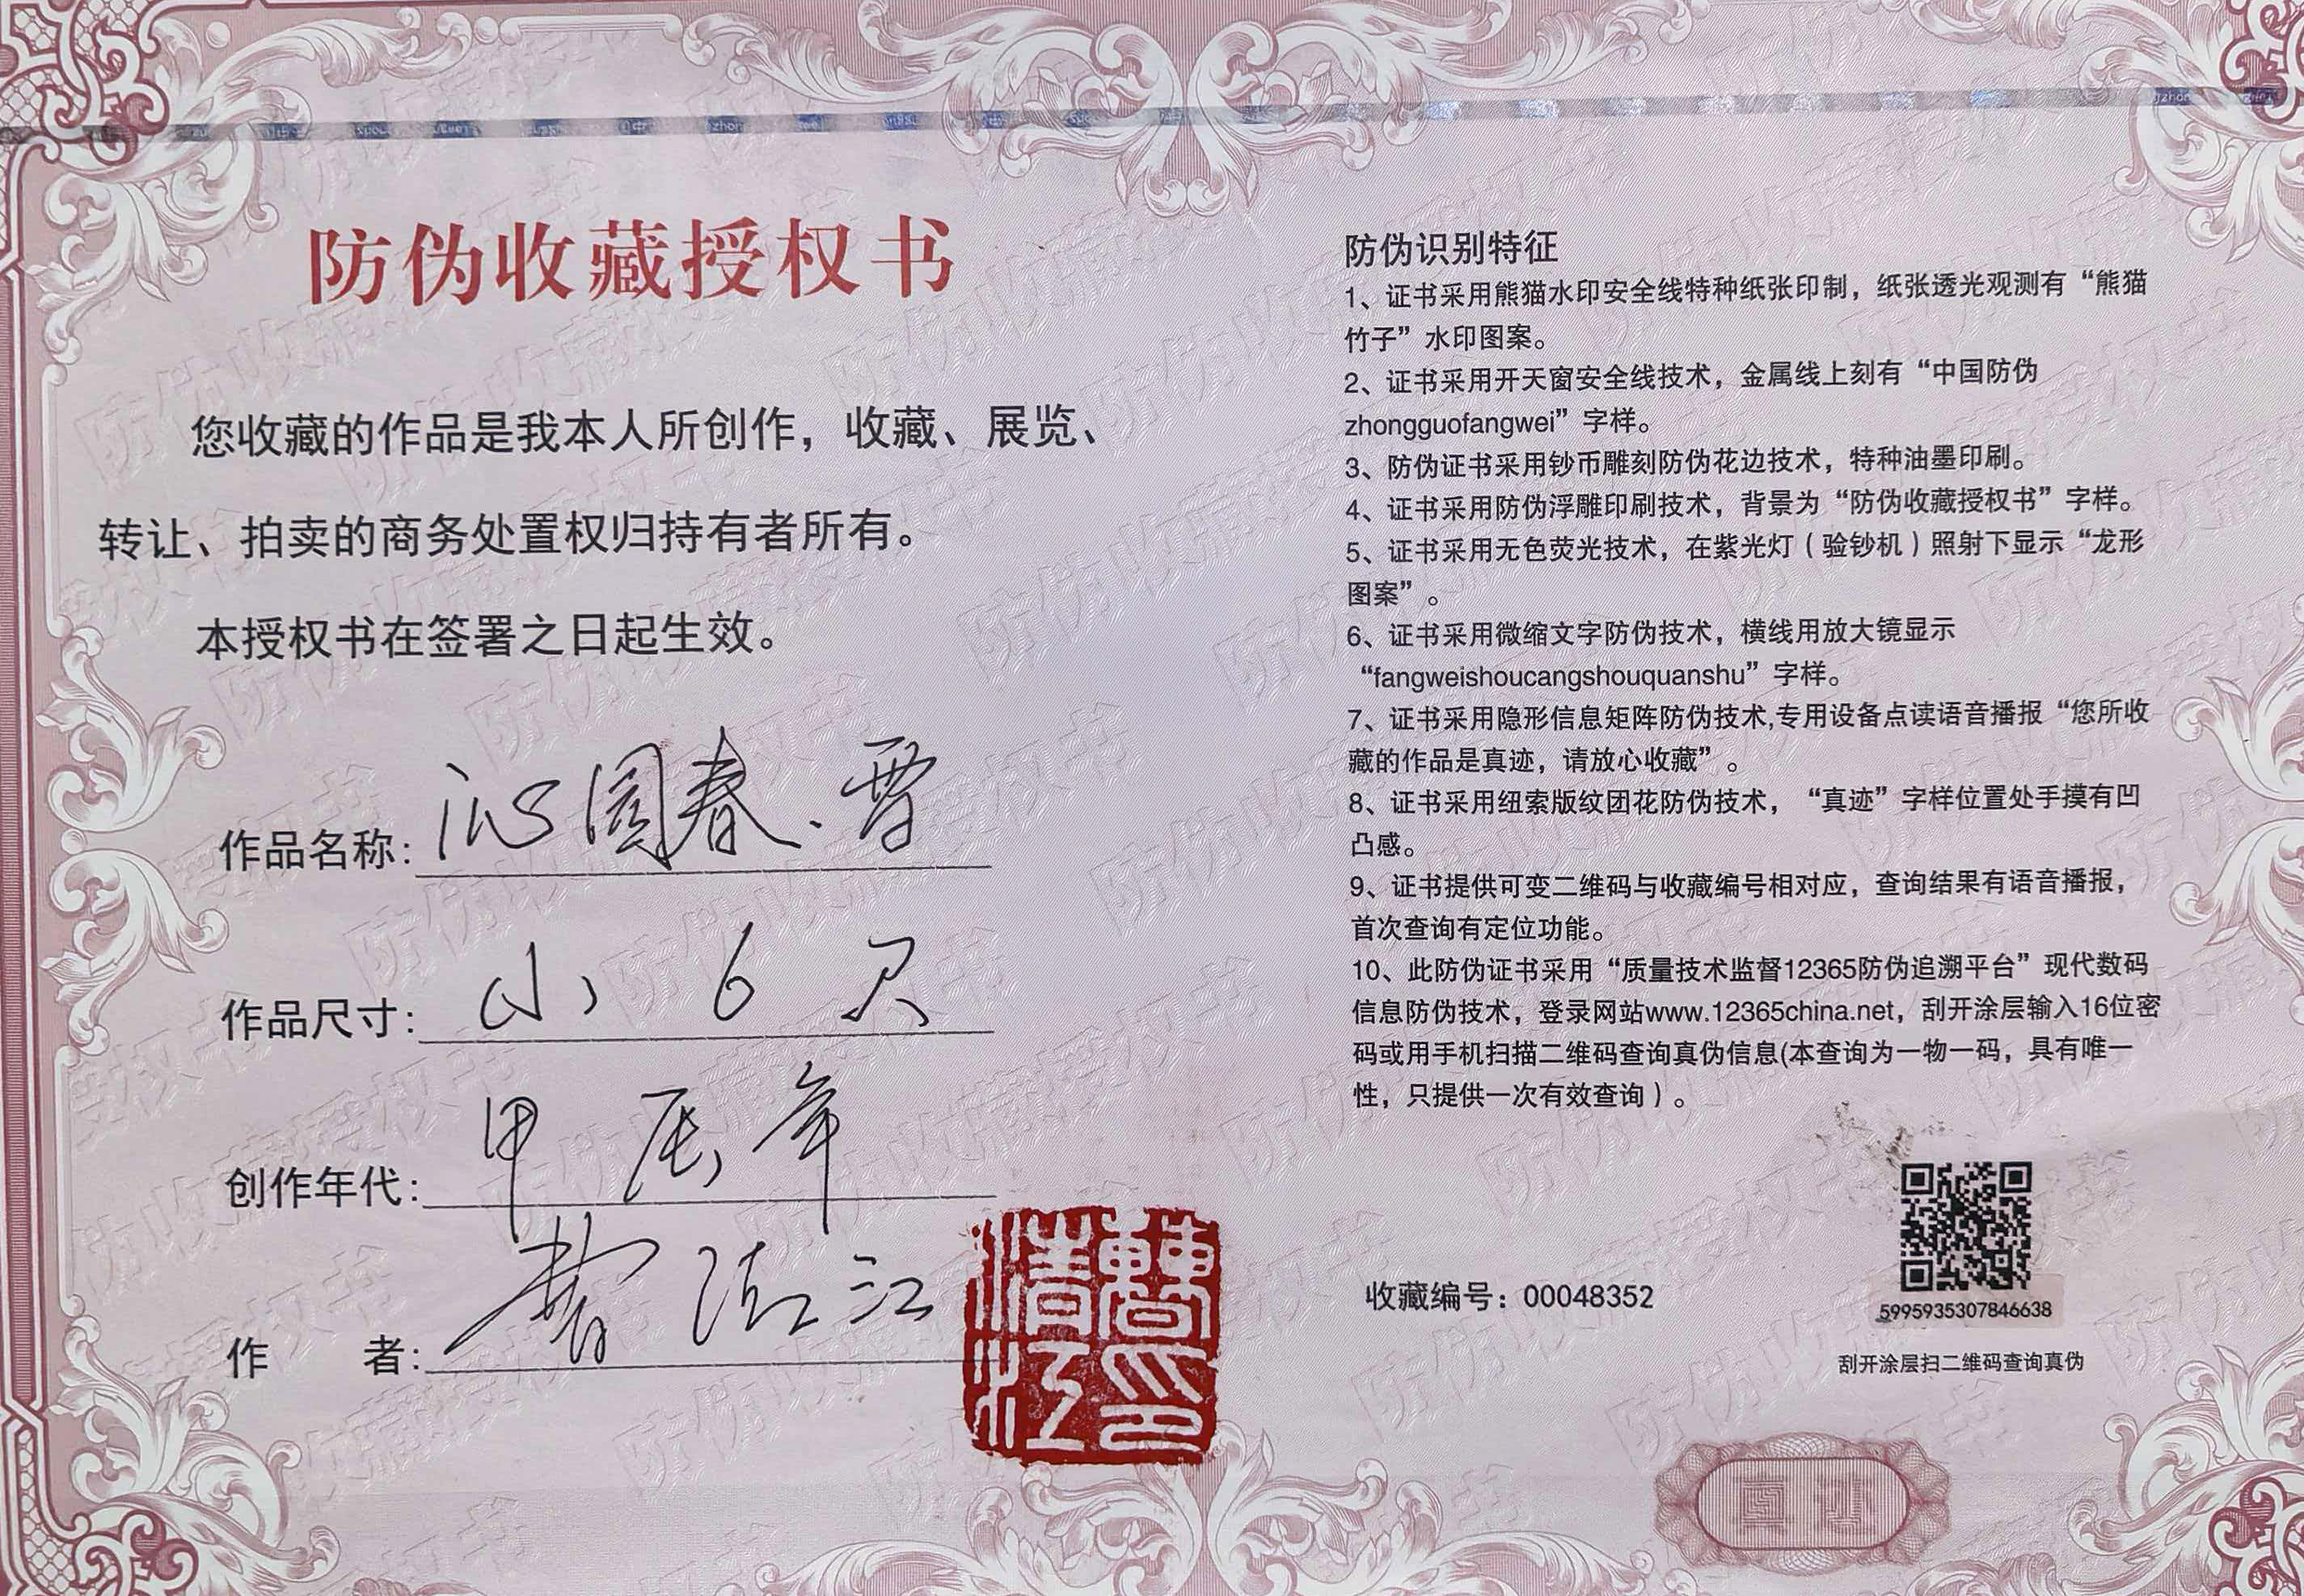 防伪收藏授权书
您收藏的作品是我本人所创作，收藏、展览、
转让、拍卖的商务处置权归持有者所有。
本授权书在签署之日起生效。
作品名称：沁园春.雪
作品尺寸：小6尺
创作年代：甲辰年
作 者：曹清江
防伪识别特征
1、证书采用熊猫水印安全线特种纸张印制，纸张透光观测有“熊猫
竹子”水印图案。
2、证书采用开天窗安全线技术，金属线上刻有“中国防伪
zhongguofangwei”字样。
3、防伪证书采用钞币雕刻防伪花边技术，特种油墨印刷。
4、证书采用防伪浮雕印刷技术，背景为“防伪收藏授权书”字样。
5、证书采用无色荧光技术，在紫光灯（验钞机）照射下显示“龙形
图案”。
6、证书采用微缩文字防伪技术，横线用放大镜显示
“fangweishoucangshouquanshu”字样。
7、证书采用隐形信息矩阵防伪技术,专用设备点读语音播报“您所收
藏的作品是真迹，请放心收藏”。
8、证书采用纽索版纹团花防伪技术，“真迹”字样位置处手摸有凹
凸感。
9、证书提供可变二维码与收藏编号相对应，查询结果有语音播报，
首次查询有定位功能。
10、此防伪证书采用“质量技术监督12365防伪追溯平台”现代数码
信息防伪技术，登录网站www.12365china.net，刮开涂层输入16位密
码或用手机扫描二维码查询真伪信息(本查询为一物一码，具有唯一
性，只提供一次有效查询）。
收藏编号：00048352
5995935307846638
刮开涂层扫二维码查询真伪
真迹